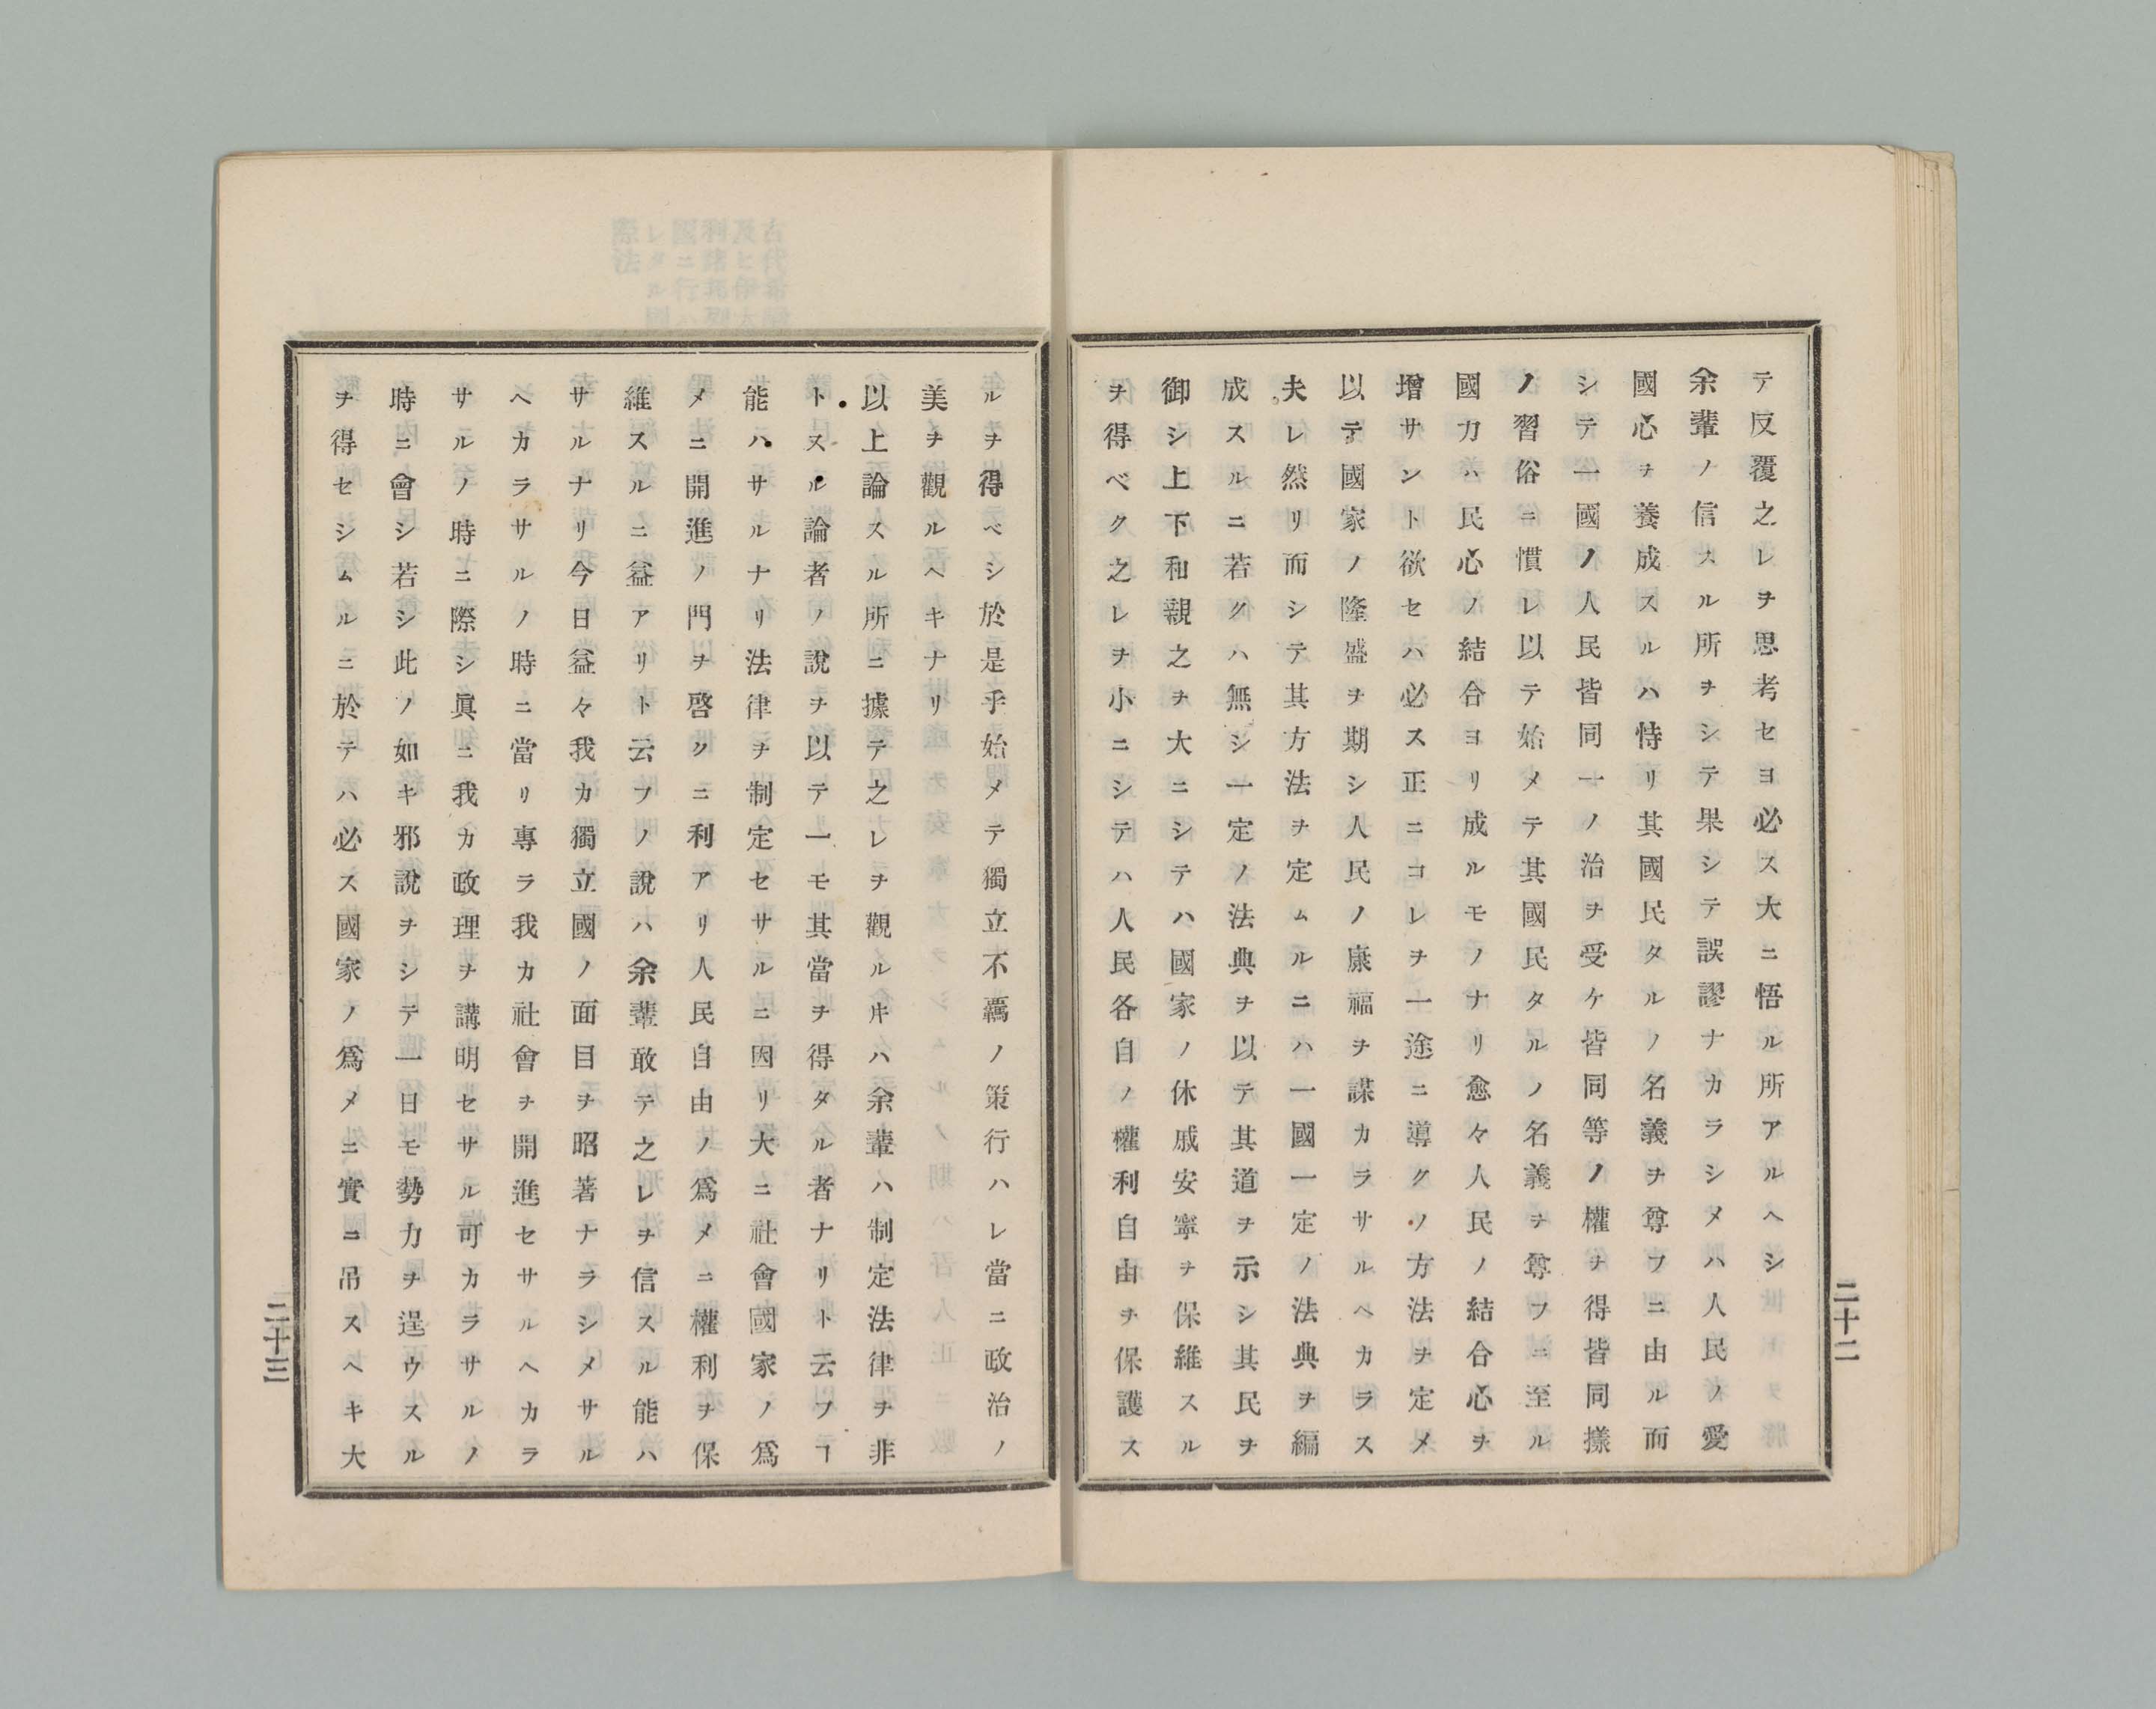 テ反覆之レヲ思考セヨ必ス大ニ悟ル所アルヘシ
余輩ノ信スル所ヲシテ果シテ誤謬ナカラシメハ人民ノ愛
國心ヲ養成スルハ恃リ其國民タルノ名義ヲ尊フニ由ル而
シテ一國ノ人民皆同一ノ治ヲ受ケ皆同等ノ權ヲ得皆同樣
ノ習俗ニ慣レ以テ始メテ其國民タルノ名義ヲ尊フニ至ル
國力ハ民心ノ結合ヨリ成ルモノナリ愈々人民ノ結合心ヲ
增サント欲セハ必ス正ニコレヲ一途ニ導クノ方法ヲ定メ
以テ國家ノ隆盛ヲ期シ人民ノ康福ヲ謀カラサルヘカラス
夫レ然リ而シテ其方法ヲ定ムルニハ一國一定ノ法典ヲ編
成スルニ若クハ無シ一定ノ法典ヲ以テ其道ヲ示シ其民ヲ
御シ上下和親之ヲ大ニシテハ國家ノ休戚安寧ヲ保維スル
ヲ得ベク之レヲ小ニシテハ人民各自ノ權利自由ヲ保護ス
二十二
ルヲ得ベシ於是乎始メテ獨立不羈ノ策行ハレ當ニ政治ノ
美ヲ觀ルヘキナリ
以上論スル所ニ據テ之レヲ觀ル𪜈ハ余輩ハ制定法律ヲ非
トスル論者ノ說ヲ以テ一モ其當ヲ得タル者ナリト云フヿ
能ハサルナリ法律ヲ制定セサルニ因リ大ニ社會國家ノ爲
メニ開進ノ門ヲ啓クニ利アリ人民自由ノ爲メニ權利ヲ保
維スルニ益アリト云フノ說ハ余輩敢テ之レヲ信スル能ハ
サルナリ今日益々我カ獨立國ノ面目ヲ昭著ナラシメサル
ヘカラサルノ時ニ當リ專ラ我カ社會ヲ開進セサルヘカラ
サルノ時ニ際シ眞ニ我カ政理ヲ講明セサル可カラサルノ
時ニ會シ若シ此ノ如キ邪說ヲシテ一日モ勢力ヲ逞ウスル
ヲ得セシムルニ於テハ必ス國家ノ爲メニ實ニ吊スヘキ大
二十三